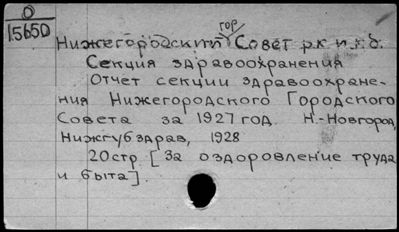 О
15650
гор
Нижегородский Совет р.к и.к.д.
Секция здравоохранения
Отчет секции здравоохране-
ния Нижегородского Городского
Совета за 1927 год. Н.-Новгород,
Нижгубздрав, 1928
20стр [За оздоровление труда
и быта].